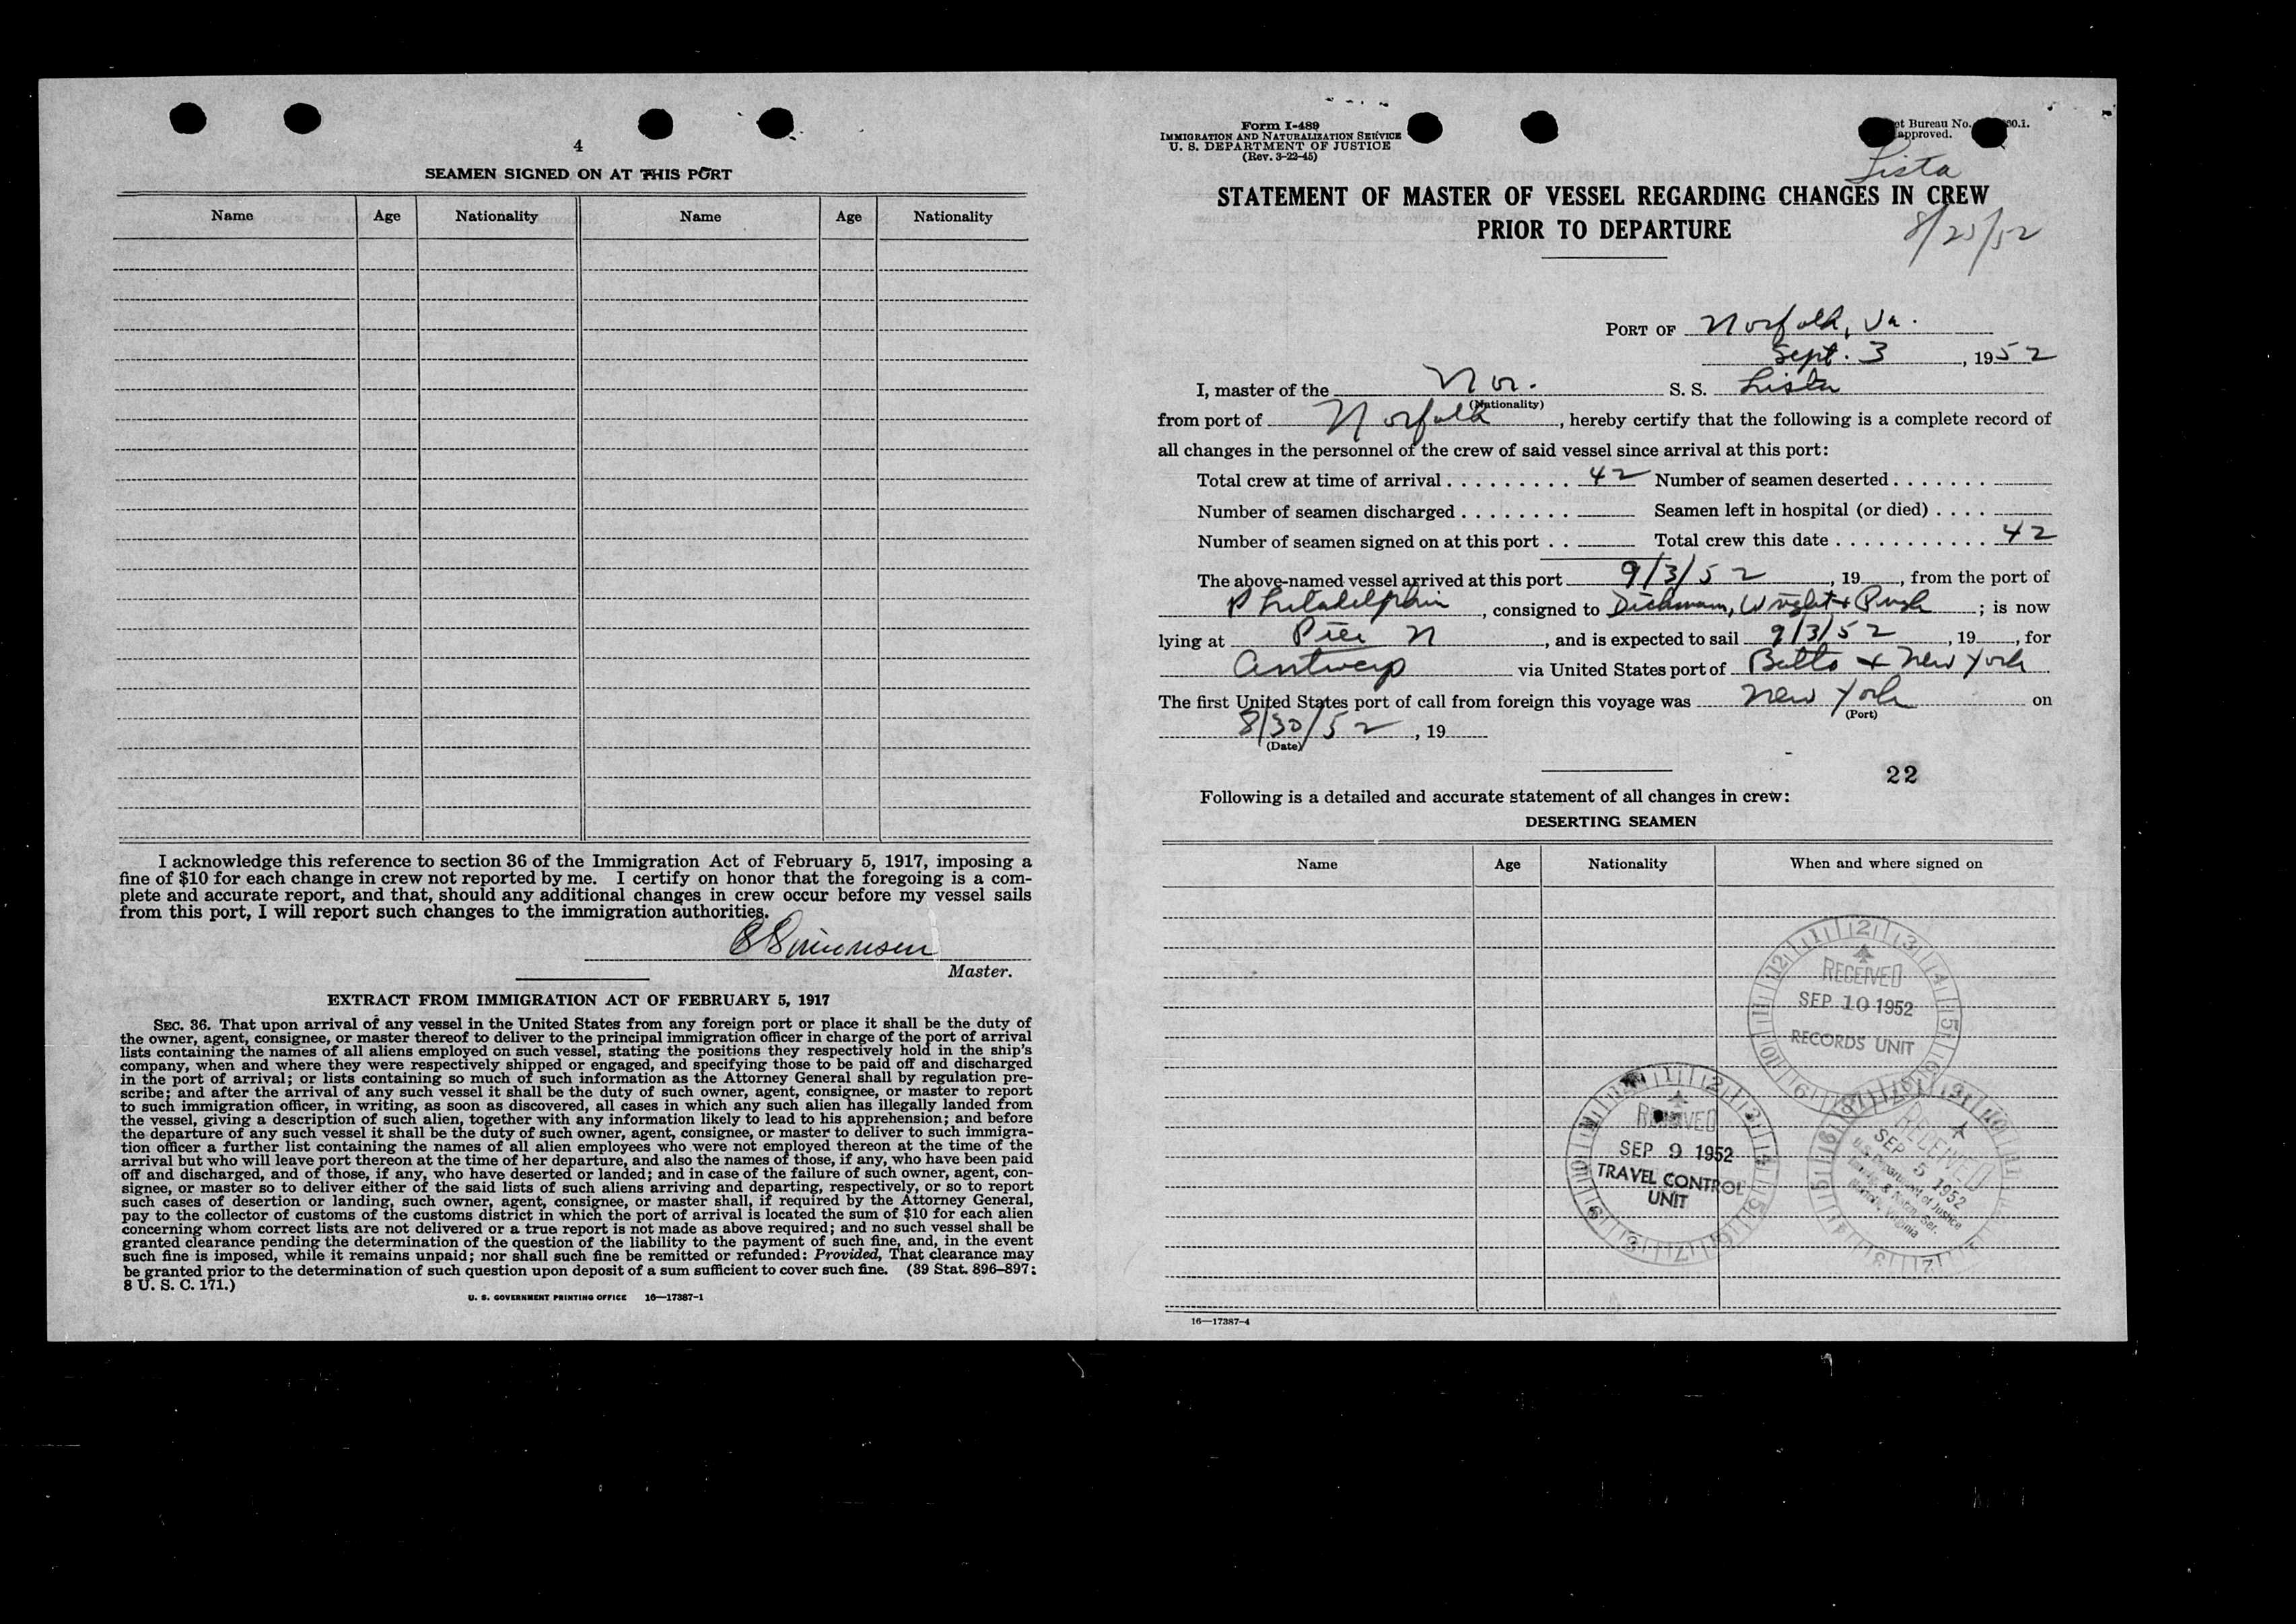 4
SEAMEN SIGNED ON AT THIS PORT
Name Age Nationality Name Age Nationality
I acknowledge this reference to section 36 of the Immigration Act of February 5, 1917, imposing a
fine of $10 for each change in crew not reported by me. I certify on honor that the foregoing is a com-
plete and accurate report, and that, should any additional changes in crew occur before my vessel sails
from this port, I will report such changes to the immigration authorities.
Simonsen
Master.
EXTRACT FROM IMMIGRATION ACT OF FEBRUARY 5, 1917
SEC. 36. That upon arrival of any vessel in the United States from any foreign port or place it shall be the duty of
the owner, agent, consignee, or master thereof to deliver to the principal immigration officer in charge of the port of arrival
lists containing the names of all aliens employed on such vessel, stating the positions they respectively hold in the ship's
company, when and where they were respectively shipped or engaged, and specifying those to be paid off and discharged
in the port of arrival; or lists containing so much of such information as the Attorney General shall by regulation pre-
scribe; and after the arrival of any such vessel it shall be the duty of such owner, agent, consignee, or master to report
to such immigration officer, in writing, as soon as discovered, all cases in which any such alien has illegally landed from
the vessel, giving a description of such alien, together with any information likely to lead to his apprehension; and before
the departure of any such vessel it shall be the duty of such owner, agent, consignee, or master to deliver to such immigra-
tion officer a further list containing the names of all alien employees who were not employed thereon at the time of the
arrival but who will leave port thereon at the time of her departure, and also the names of those, if any, who have been paid
off and discharged, and of those, if any, who have deserted or landed; and in case of the failure of such owner, agent, con-
signee, or master so to deliver either of the said lists of such aliens arriving and departing, respectively, or so to report
such cases of desertion or landing, such owner, agent, consignee, or master shall, if required by the Attorney General,
pay to the collector of customs of the customs district in which the port of arrival is located the sum of $10 for each alien
concerning whom correct lists are not delivered or a true report is not made as above required; and no such vessel shall be
granted clearance pending the determination of the question of the liability to the payment of such fine, and, in the event
such fine is imposed, while it remains unpaid; nor shall such fine be remitted or refunded: Provided, That clearance may
be granted prior to the determination of such question upon deposit of a sum sufficient to cover such fine. (39 Stat. 896–897;
8 U. S. C. 171.)
U. S. GOVERNMENT PRINTING OFFICE 16—17387-1
Form I-489
IMMIGRATION AND NATURALIZATION SERVICE
U. S. DEPARTMENT OF JUSTICE
(Rev. 3-22-45)
Bureau No.
approved.
Lista
STATEMENT OF MASTER OF VESSEL REGARDING CHANGES IN CREW
PRIOR TO DEPARTURE
8/25/52
PORT OF Norfolk, Va.
Sept. 3, 1952
I, master of the Nor. S. S. Lista
(Nationality)
from port of Norfolk, hereby certify that the following is a complete record of
all changes in the personnel of the crew of said vessel since arrival at this port:
Total crew at time of arrival 42 Number of seamen deserted
Number of seamen discharged Seamen left in hospital (or died)
Number of seamen signed on at this port Total crew this date 42
The above-named vessel arrived at this port 9/3/52, 19, from the port of
Philadelphia, consigned to Dichmann, Wright & Pugh; is now
lying at Pier N, and is expected to sail 9/3/52, 19, for
Antwerp via United States port of Balto & New York
The first United States port of call from foreign this voyage was New York on
(Port)
8/30/52, 19
(Date)
22
Following is a detailed and accurate statement of all changes in crew:
DESERTING SEAMEN
Name Age Nationality When and where signed on
RECEIVED
SEP 10 1952
RECORDS UNIT
RECEIVED
SEP 9 1952
TRAVEL CONTROL
UNIT
RECEIVED
SEP 5 1952
U. S. Department of Justice
Immig. & Natn. Ser.
Norfolk, Virginia
16—17387-4